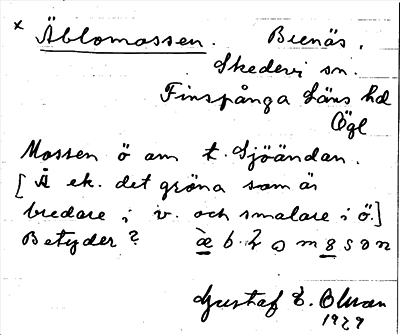 × Äblomossen. Brenäs.
Skedevi sn.
Finspånga Läns hd
Ögl
Mossen ö om t. Sjöändan.
[Å ek. det gröna som är
bredare i v. och smalare i ö.]
Betyder?
Gustaf E. Olsson
1929